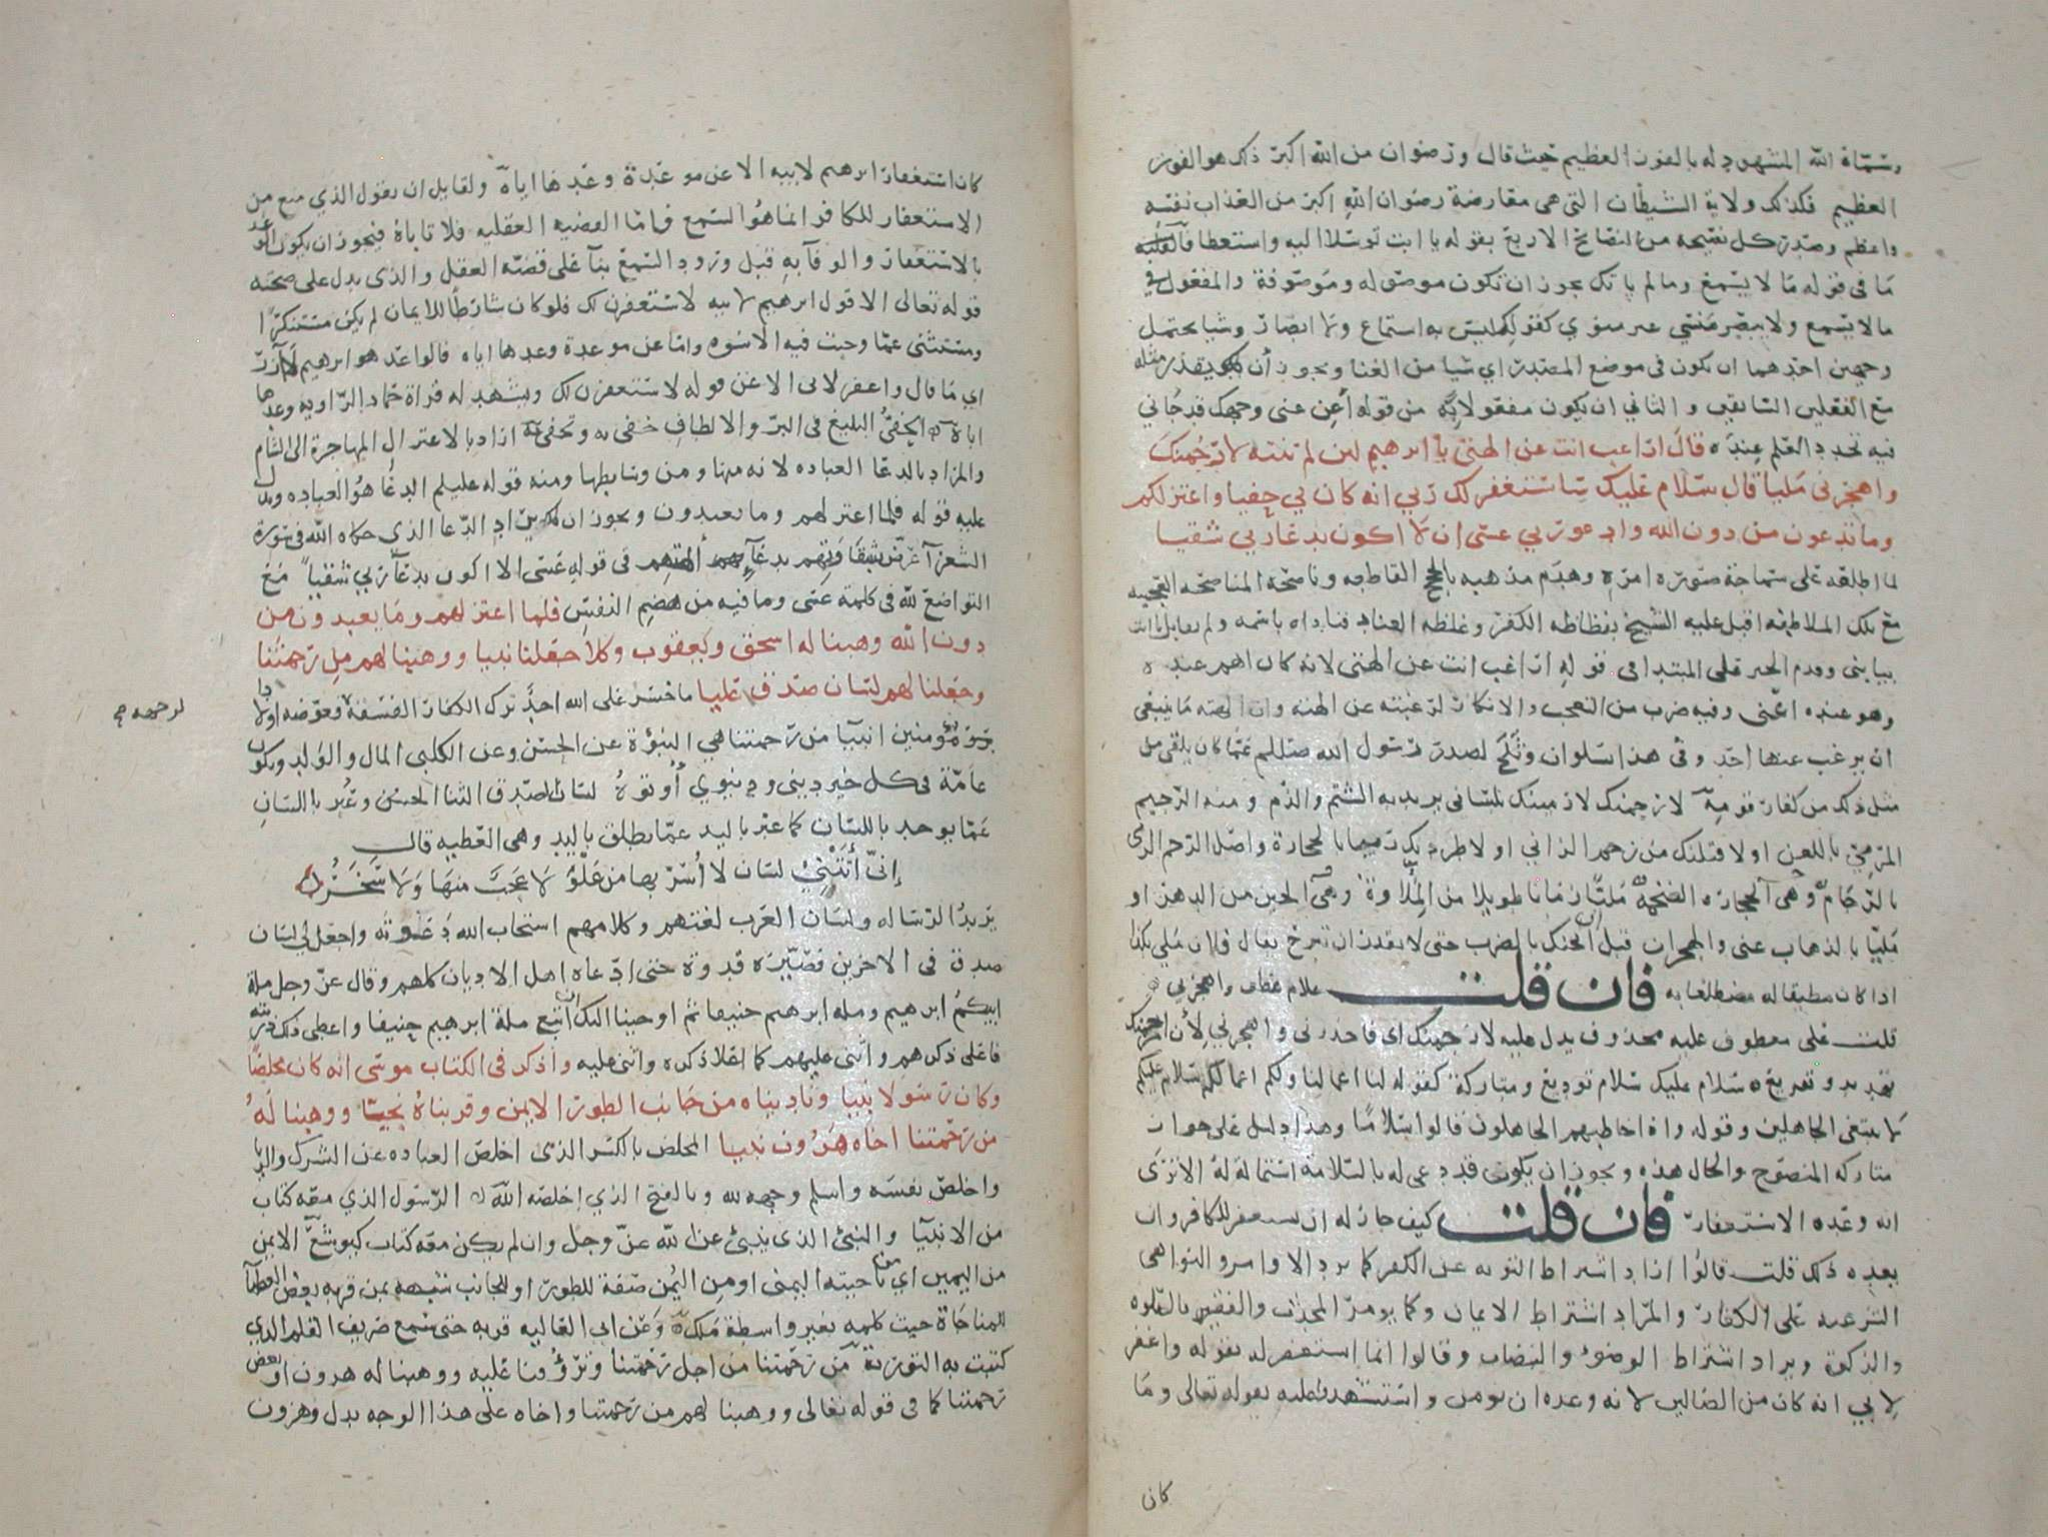 وسماه الله المشهود له بالفوز العظيم حيث قال ورضوان من الله اكبر ذلك هو الفوز
العظيم فكذلك ولاية الشيطان التي هي معارضة رضوان الله اكبر من العذاب نفسه
واعظم وصدر كل نصيحه من النصائح الاربع بقوله يا ابت توسلا اليه واستعطافا لقلبه
ما في قوله ما لا يسمع وما لم ياتك يجوز ان تكون موصوله وموصوفة والمفعول في
ما لا يسمع ولا يبصر منسي غير منوي كقولك ليس به استماع ولا ابصار وشيا يحتمل
وجهين احدهما ان يكون في موضع المصدر اي شيا من الغنا ويجوز ان يقدر مثله
مع الفعلين السابقين والثاني ان يكون مفعولا به من قوله أغن عني وجهك قد جاني
فيه تجدد العلم عنده قال اراغب انت عن الهتي يا ابرهيم لين لم تنته لارجمنك
واهجرني مليا قال سلام عليك ساستغفر لك ربي انه كان بي حفيا واعتزلكم
وما تدعون من دون الله وادعو ربي عسى ان لا اكون بدعاء ربي شقيا
لما اطلعه على سماجة صورة امره وهدم مذهبه بالحجج القاطعه وناصحه المناصحه العجيبه
مع تلك الملاطفه اقبل عليه الشيخ بفظاظه الكفر وغلظه العناد فناداه باسمه ولم يقابل يا ابت
بيا بني وقدم الخبر على المبتدا في قوله اراغب انت عن الهتي لانه كان اهم عنده
وهو عنده اعنى وفيه ضرب من التعجب والانكار لرغبته عن الهته وان الهته ما ينبغي
ان يرغب عنها احد وفي هذا سلوان وثلج لصدر رسول الله صللم عما كان يلقى من
مثل ذلك من كفار قومه لارجمنك لارمينك بلساني يريد به الشتم والذم ومنه الرجيم
المرمي باللعن او لاقتلنك من رجم الزاني او لاطردنك رميا بالحجارة واصل الرجم الرمى
بالرجام وهي الحجاره الضخمه مليا زمانا طويلا من الملاوة وهي الحين من الدهر او
مليا بالذهاب عني والهجران قبل ان اثخنك بالضرب حتى لا تقدر ان تبرح يقال فلان ملي بكذا
اذا كان مطيقا له مضطلعا به فان قلت علام عطف واهجرني
قلت على معطوف عليه محذوف يدل عليه لارجمنك اي فاحذرني واهجرني لأن لارجمنك
تهديد وتقريع سلام عليك سلام توديع ومتاركة كقوله لنا اعمالنا ولكم اعمالكم سلام عليكم
لا نبتغي الجاهلين وقوله واذا خاطبهم الجاهلون قالوا سلاما وهذا دليل على جواز
متاركه المنصوح والحال هذه ويجوز ان يكون قد دعى له بالسلامة استمالة له الا ترى
انه وعده الاستغفار فان قلت كيف جاز له ان يستغفر للكافر وان
يعده ذلك قلت قالوا اراد اشتراط التوبه عن الكفر كما يرد الاوامر والنواهي
الشرعيه على الكفار والمراد اشتراط الايمان وكما يومر المحدث والفقير بالصلوه
والزكوة ويراد اشتراط الوضوء والنصاب وقالوا انما استغفر له بقوله واغفر
لابي انه كان من الضالين لانه وعده ان يومن واستشهدوا عليه بقوله تعالى وما
كان
كان استغفار ابرهيم لابيه الا عن موعدة وعدها اياه ولقايل ان يقول الذي منع من
الاستغفار للكافر انما هو السمع فاما القضيه العقليه فلا تاباه فيجوز ان يكون الوعد
بالاستغفار والوفاء به قبل ورود السمع بنآ على قضيه العقل والذى يدل على صحته
قوله تعالى الا قول ابرهيم لابيه لاستغفرن لك فلو كان شارطا للايمان لم يكن مستنكرا
ومستثنى عما وجبت فيه الاسوه واما عن موعدة وعدها اياه فالواعد هو ابرهيم لا آزر
اي ما قال واغفر لابي الا عن قوله لاستغفرن لك ويشهد له قراة حماد الراويه وعدها
اباه الحفي البليغ في البر والالطاف حفي به وتحفى به اراد بالاعتزال المهاجرة الى الشام
والمراد بالدعا العباده لانه منها ومن وسايطها ومنه قوله عليلم الدعا هو العباده ويدل
عليه قوله فلما اعتزلهم وما يعبدون ويجوز ان يراد الدعا الذي حكاه الله في سورة
الشعرآ عرض بشقاوتهم بدعآء الهتهم في قوله عسى الا اكون بدعآ ربي شقيا مع
التواضع لله في كلمة عسى وما فيه من هضم النفس فلما اعتزلهم وما يعبدون من
دون الله وهبنا له اسحق ويعقوب وكلا جعلنا نبيا ووهبنا لهم من رحمتنا
وجعلنا لهم لسان صدق عليا ما خسر على الله احد ترك الكفار الفسقة لوجهه فعوضه اولادا
لوجهه صح
مؤمنين انبيآ من رحمتنا هي النبوة عن الحسن وعن الكلبي المال والولد ويكون
عامة في كل خير ديني ودنيوي أوتوه لسان الصدق الثنا الحسن وعبر باللسان
عما يوجد باللسان كما عبر باليد عما يطلق باليد وهي العطيه قال
إني أتتني لسان لا أسر بها من علو لا عجب منها ولا سخر
يريد الرساله ولسان العرب لغتهم وكلامهم استجاب الله دعوته واجعل لي لسان
صدق في الاخرين فصيره قدوة حتى ادعاه اهل الاديان كلهم وقال عز وجل ملة
ابيكم ابرهيم وملة ابرهيم حنيفا ثم اوحينا اليك ان اتبع ملة ابرهيم حنيفا واعطى ذلك ذريته
فاعلى ذكرهم واثنى عليهم كما اعلا ذكره واثنى عليه واذكر في الكتاب موسى انه كان مخلصا
وكان رسولا نبيا وناديناه من جانب الطور الايمن وقربناه نجيا ووهبنا له
من رحمتنا اخاه هرون نبيا المخلص بالكسر الذى اخلص العباده عن الشرك والريا
واخلص نفسه واسلم وجهه لله وبالفتح الذي اخلصه الله الرسول الذي معه كتاب
من الانبيآ والنبئ الذى ينبئ عن الله عز وجل وان لم يكن معه كتاب كيوشع الايمن
من اليمين اي من ناحيته اليمنى او من اليمن صفة للطور او للجانب شبهه بمن قربه بعض العظمآ
للمناجاة حيث كلمه بغير واسطة ملك وعن ابي العاليه قربه حتى سمع صريف القلم الذي
كتبت به التورية من رحمتنا من اجل رحمتنا وترؤفنا عليه ووهبنا له هرون او بعض
رحمتنا كما في قوله تعالى ووهبنا لهم من رحمتنا واخاه على هذا الوجه بدل وهرون